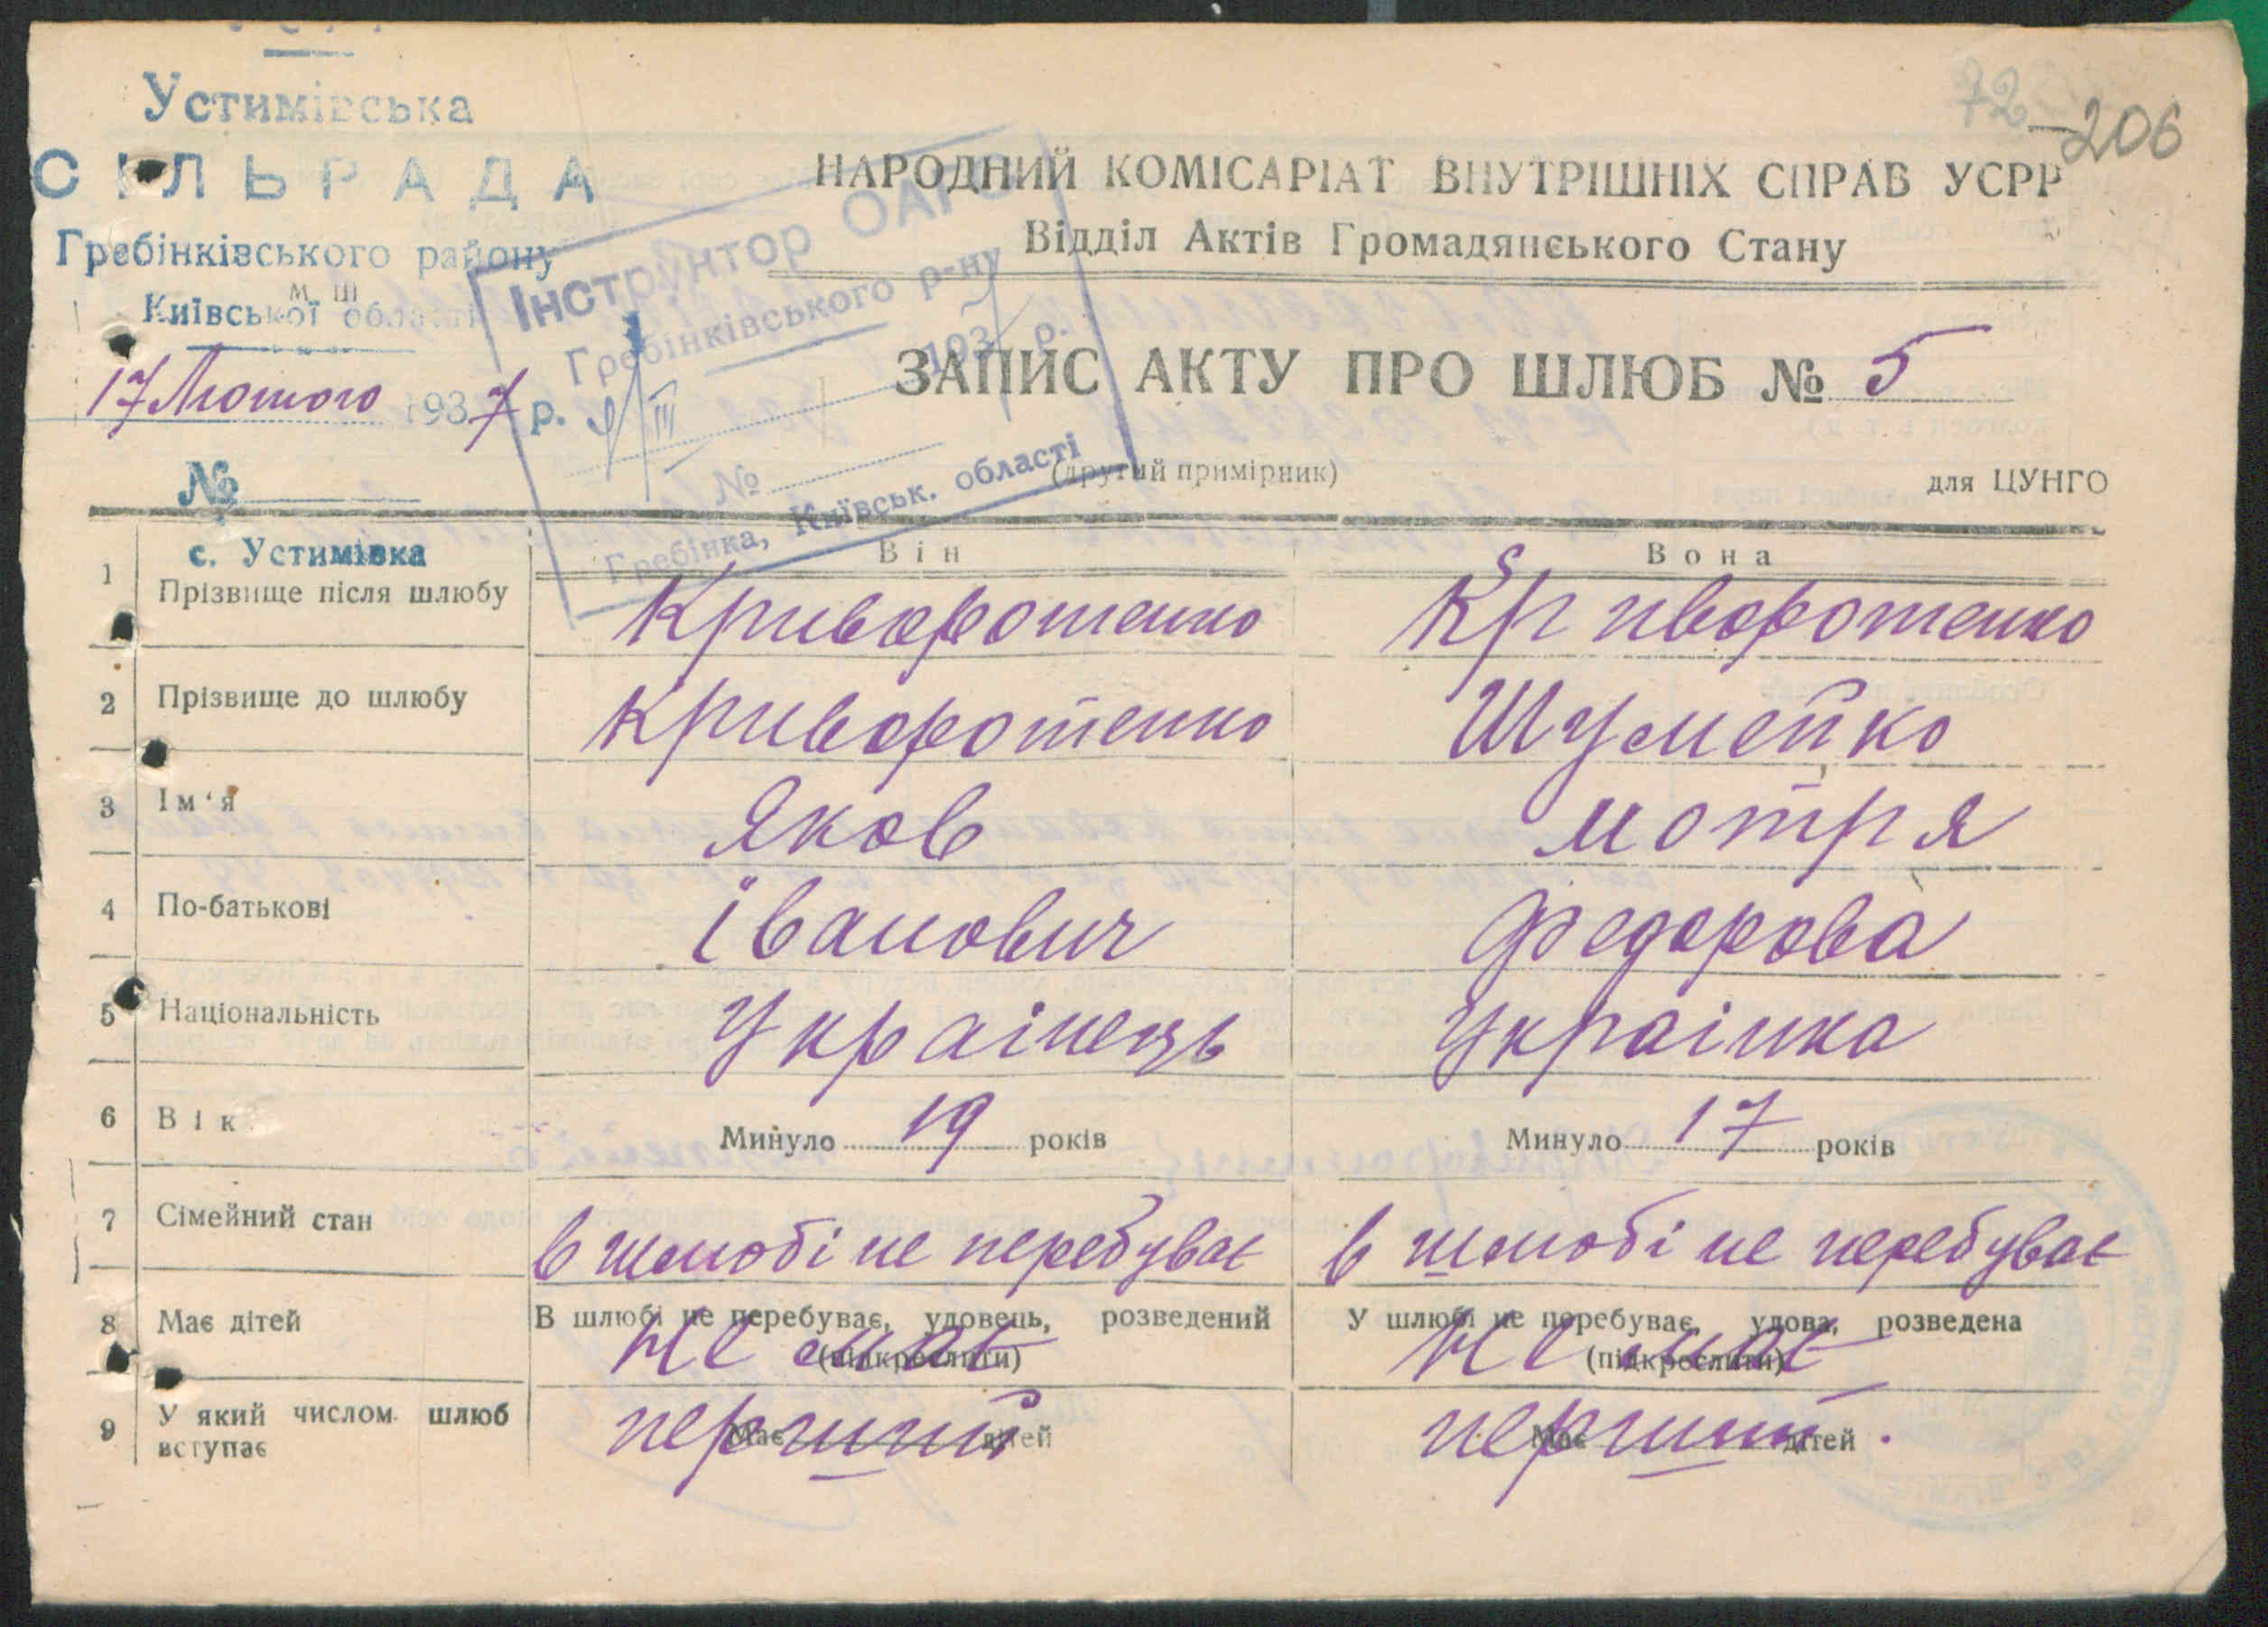 УСРР
72 206
Устимівська
СІЛЬРАДА
Гребінківського району
Київської області
17 Лютого 1937 р.
№
с. Устимівка
Інструктор ОАГС
Гребінківського р-ну
9/III 193 р.
№
Гребінка, Київськ. області
НАРОДНИЙ КОМІСАРІАТ ВНУТРІШНІХ СПРАВ УСРР
Відділ Актів Громадянського Стану
ЗАПИС АКТУ ПРО ШЛЮБ № 5
(другий примірник)
для ЦУНГО
Він Вона
1 Прізвище після шлюбу Криворотенко Криворотенко
2 Прізвище до шлюбу Криворотенко Шумейко
3 Ім'я Яков Мотря
4 По-батькові Іванович Федорова
5 Національність Українець Українка
6 Вік Минуло 19 років Минуло 17 років
7 Сімейний стан в шлюбі не перебуває в шлюбі не перебуває
В шлюбі не перебуває, удовець, розведений У шлюбі не перебуває, удова, розведена
(підкреслити) (підкреслити)
8 Має дітей не має не має
9 У який числом шлюб
вступає
перший перший
Має дітей Має дітей